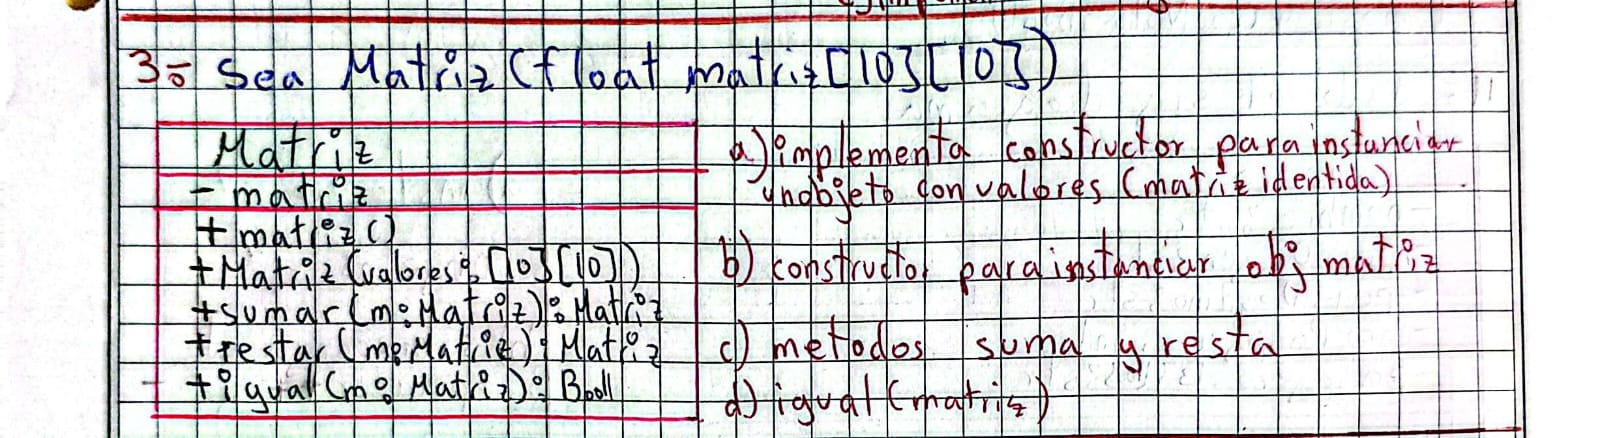 3- Sea Matriz (float matriz[10][10])
Matriz
- matriz
+ matriz()
+ Matriz (valores: [10][10])
+ sumar (m: Matriz): Matriz
+ restar (m: Matriz): Matriz
+ igual (m: Matriz): Booll
a) implementa constructor para instanciar
un objeto con valores (matriz identida)
b) constructor para instanciar obj matriz
c) metodos suma y resta
d) igual (matriz)